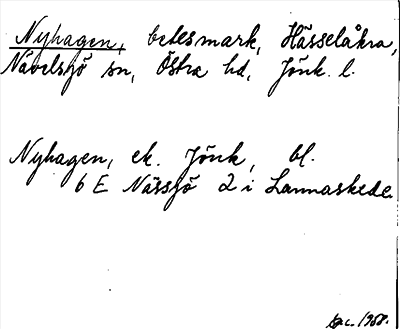 Nyhagen, betesmark, Hässelåkra,
Nävelsjö sn, Östra hd, Jönk. l.
Nyhagen, ek. Jönk, bl.
6 E Nässjö 2 i Lannaskede.
1958.